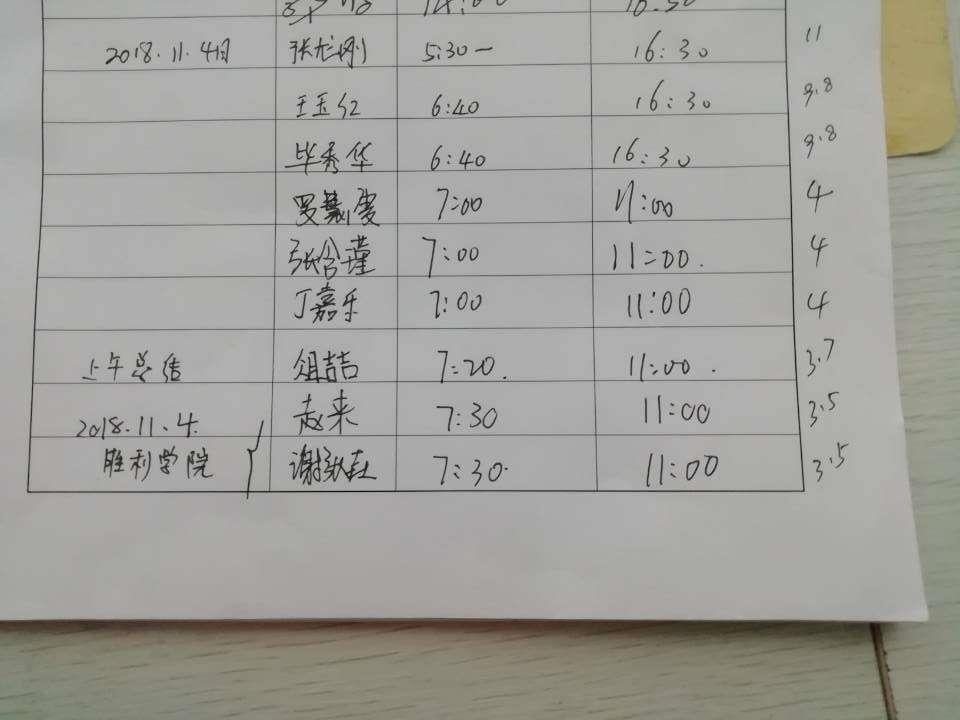 2018.11.4日 张龙刚 5:30一 16:30 11
王玉红 6:40 16:30 9.8
毕秀华 6:40 16:30 9.8
7:00 11:00 4
张含瑾 7:00 11:00. 4
丁嘉乐 7:00 11:00 4
上午总结 俎喆 7:20. 11:00. 3.7
2018.11.4. 赵来 7:30 11:00 3.5
胜利学院 7:30. 11:00 3.5